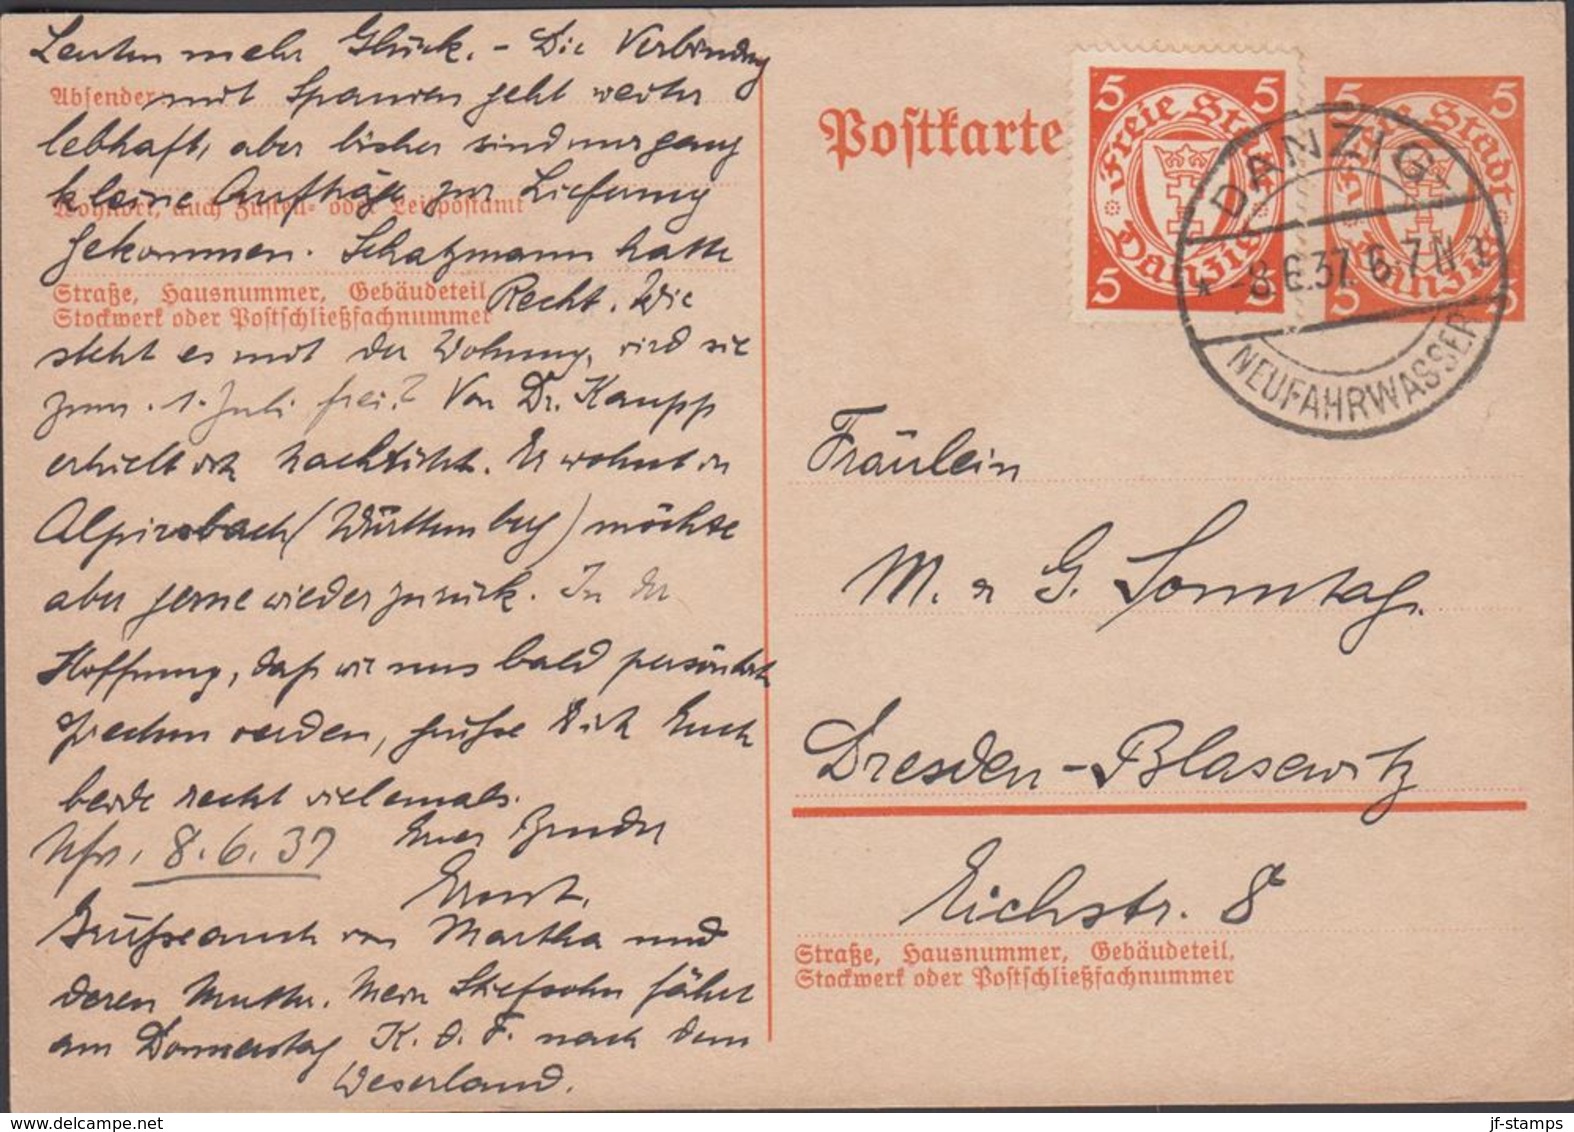 Leuten mehr Glück. – Die Verbindung
Absender:
mit Spanien geht weiter
lebhaft, aber bisher sind nur ganz
kleine Aufträge zur Lieferung
Wohnort, auch Zustell- oder Leitpostamt
gekommen. Schatzmann hatte
Straße, Hausnummer, Gebäudeteil
Recht. Wie
Stockwerk oder Postschließfachnummer
steht es mit der Wohnung, wird sie
zum 1. Juli frei? Von Dr. Kaupp
erhielt ich Nachricht. Er wohnt in
Alpirsbach (Württemberg) möchte
aber gerne wieder zurück. In der
Hoffnung, daß wir uns bald persönlich
sprechen werden, grüße Dich Euch
beide recht vielemals.
Nfw. 8.6.37 Euer Bruder
Ernst.
Grüße auch von Martha und
deren Mutter. Mein Stiefsohn fährt
am Donnerstag K. d. F. nach dem
Weserland.
Postkarte
5 5
Freie Stadt
Danzig
5 5
5 5
Freie Stadt
Danzig
5 5
DANZIG
* -8.6.37. 6-7 N 1
NEUFAHRWASSER
Fräulein
M. u G. Sonntag.
Dresden-Blasewitz
Eichstr. 8
Straße, Hausnummer, Gebäudeteil,
Stockwerk oder Postschließfachnummer
delcampe.net
jf-stamps